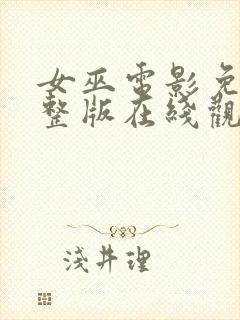 女巫電影免
整版在綫觀
淺井理